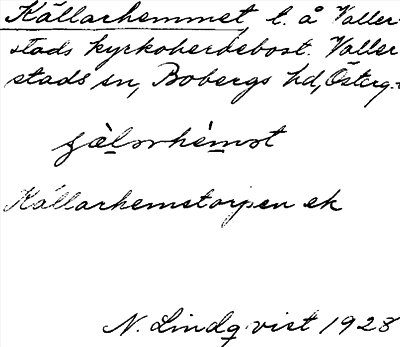 Källarhemmet, t. å Valler
stads kyrkoherdebost. Valler
stads sn, Bobergs hd, Österg.
Källarhemstorpen ek
N. Lindqvist 1928